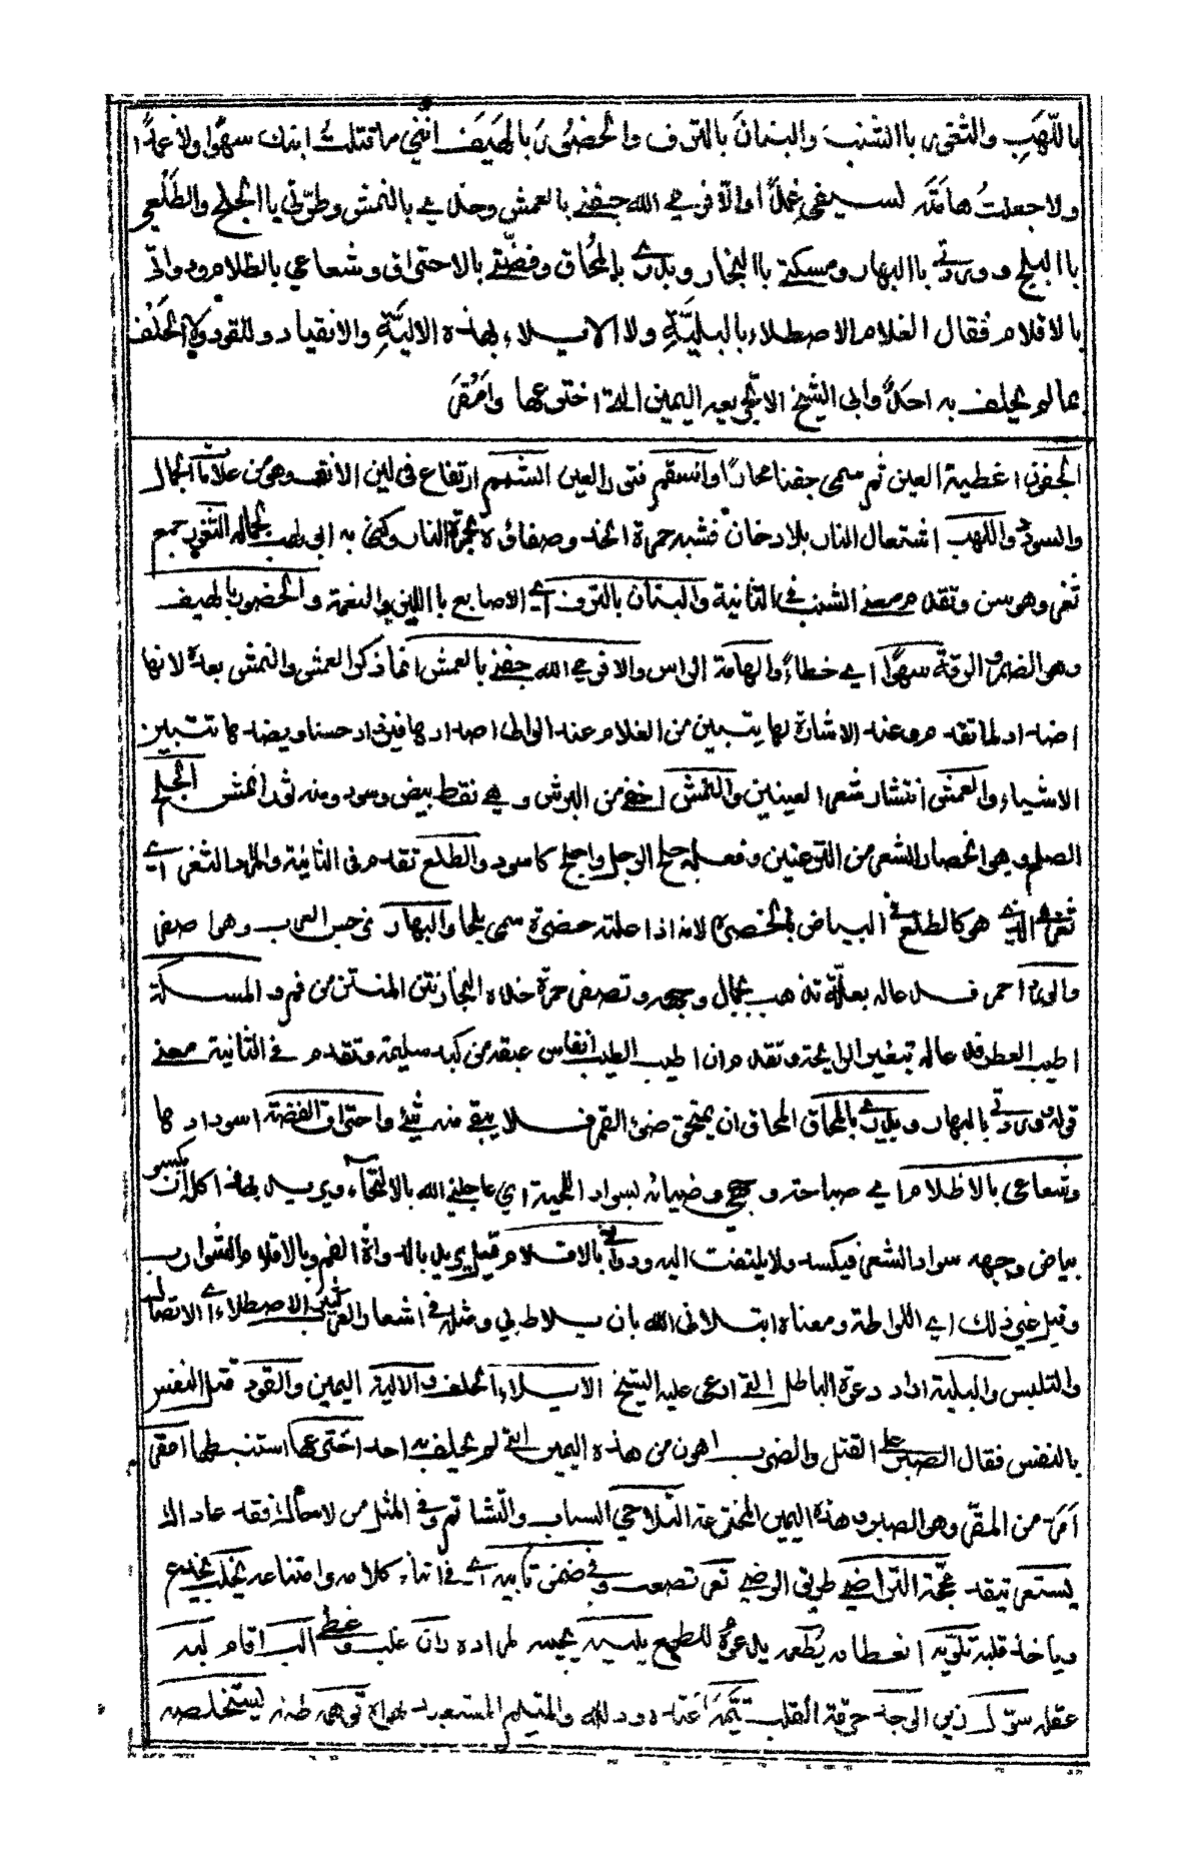 باللهب والثغور باالشنب والبنان بالترف والخصور بالهيف انني ما قتلت ابنك سهوا ولا عمدا
ولا جعلت هامته لسيفي غمدا والا فرمى الله جفني بالعمش وخدي بالنمش وطرتي باالجلح والطلعي
باالبلح ووردتي باالبهار ومسكتي باالبخار وبدري بالمحاق وفضتي بالاحتراق وشعاعي بالظلام ودواتي
بالاقلام فقال الغلام الاصطلاء بالبلية ولا الايلاء بهذه الالية والانقياد وللقود ولا الحلف
بما لم يحلف به احد وابى الشيخ الا تجريعه اليمين التي اخترعها وامقر
الجفون اغطية العين ثم سمى جفنا مجازا والسقم فتور العين الشمم ارتفاع في لين الانف وهو من علامات الجمال
والسودد واللهب اشتعال النار بلا دخان فشبه حمرة الخد وصفاؤه بجمرة النار وكني به ابي لهب لجماله الثغور جمع
ثغر وهو سن وتقدم معنى الشنب في الثانية والبنان بالترف اي الاصابع باللين والنعمة والخصور بالهيف
وهو الضمر والرقة سهوا اي خطاء والهامة الراس والا فرمى الله جفني بالعمش انما ذكر العمش والنمش بعده لانها
اضداد لما تقدم وعند الاشارة لها يتبين من الغلام عند الوالي اضدادها فيزداد حسنا وبضدها تتبين
الاشياء والعمش انتشار شعر العينين والنمش اخف من البرش وهي نقط بيض وسود ومنه ثور انمش الجلح
الصلع وهو انحصار الشعر من النزعتين وفعله جلح الرجل واجلح كاسود والطلع تقدم في الثانية والمراد الثغر اي
ثغري الذي هو كالطلع في البياض بالخضرة لانه اذا علته خضرة سمي بلحا والبهار نرجس العرب وهو اصفر
والورد احمر فدعا له بعلة تذهب بجمال وجهه وتصفر حمرة خده البخار نتن المنتن من فمه والمسكة
اطيب العطر فدعا له بتغير الرائحة وتقدم ان اطيب الطيب انفاس عبقه من كبد سليمة وتقدم في الثانية معنى
قوله وردتي بالبهار وبدري بالمحاق المحاق ان يمحق ضوء القمر فلا يبقى منه شئ واحتراق الفضة اسودادها
وشعاعي بالاظلام اي صباحته وبهجته وضيائه بسواد اللحية اي عاجلني الله بالالتحاء ويريد بهذا كله ان يكسو
بياض وجهه سواد الشعر فيكسد ولا يلتفت اليه ودواتي بالاقلام قيل يريد بالدواة الفم وبالاقلام الشوارب
وقيل غير ذلك اي اللواطة ومعناه ابتلاني الله بان يلاط بي ومثله في اشعار العرب كثير الاصطلاء اي الاتصال
والتلبس والبلية اراد دعوة الباطل التي ادعى عليه الشيخ الايلاء الحلف والالية اليمين والقود قتل النفس
بالنفس فقال الصبر على القتل والضرب اهون من هذه اليمين التي لم يحلف به احد اخترعها استنبطها امقر
امر من المقر وهو الصبر وهذه اليمين المخترعة التلاحي السباب والتشاتم وفي المثل من لاحاك فقد عاداك
يستعر تيقد محجة التراضي طريق الرضي تعر تصعب وفي ضمن تابيه اي في اثناء كلامه وامتناعه يخلب يخدع
وياخذ قلبه تلويه انعطافه يطمعه يدعوه للطمع يلبيه يجيبه لمراده ران غلب وغطى الب اقام لبه
عقله سول زين الوجد حرقة القلب تيمه اعتاده وذلله والمتيم المستعبد لهواه توهمه ظنه ليستخلصه